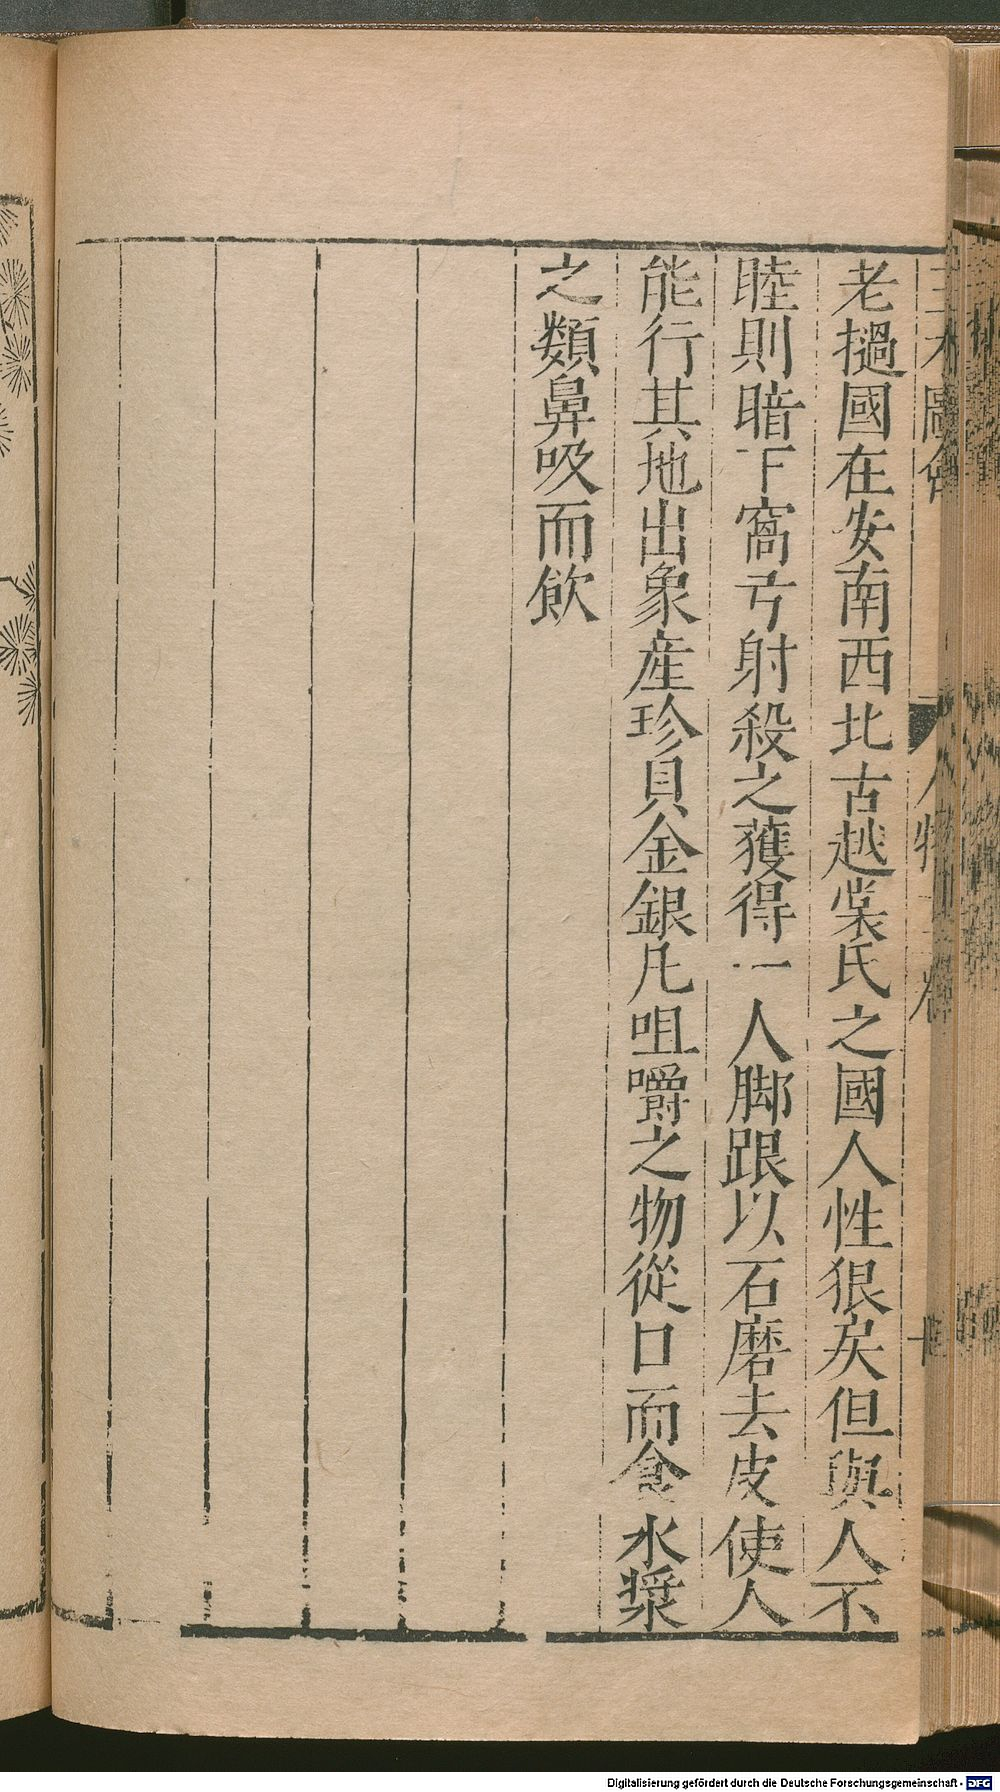 老撾國在安南西北古越裳氏之國人性狠矣但與人不
睦則暗下窩弓射殺之獲得一人脚跟以石磨去皮使人
能行其地出象産珍貝金銀凡咀嚼之物從口而食水漿
之類鼻吸而飲
Digitalisierung gefördert durch die Deutsche Forschungsgemeinschaft - DFG